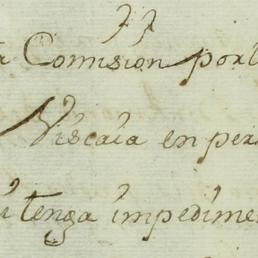 Comision por
Viscaia en per
tenga impedime